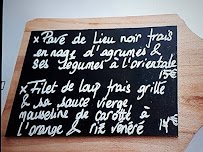 x Pavé de Lieu noir frais
en nage d'agrumes &
ses légumes à l'orientale
15€
x Filet de loup frais grillé
& sa sauce vierge
mousseline de carotte à
l'orange & riz vénéré
14€